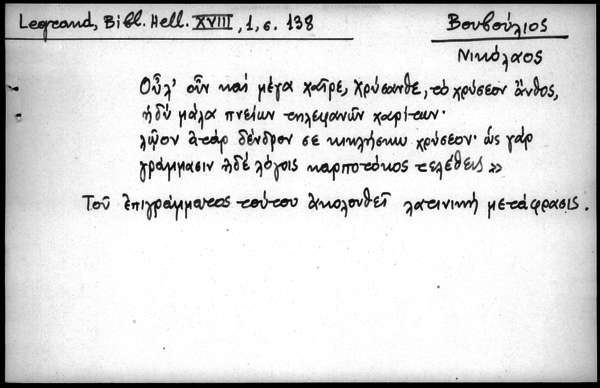 Legrand, Bibl. Hell. XVIII, 1, σ. 138
Βουβούλιος
Νικόλαος
Οὖλ' οὖν καὶ μέγα χαῖρε, Χρύσανθε, τὸ χρύσεον ἄνθος,
ἡδὺ μάλα πνείων τηλεφανῶν χαρίτων·
λῷον ἀτὰρ δένδρον σε κικλήσκω χρύσεον· ὡς γὰρ
γράμμασιν ἠδὲ λόγοις καρποτόκος τελέθεις »
Τοῦ ἐπιγράμματος τούτου ἀκολουθεῖ λατινικὴ μετάφρασις.